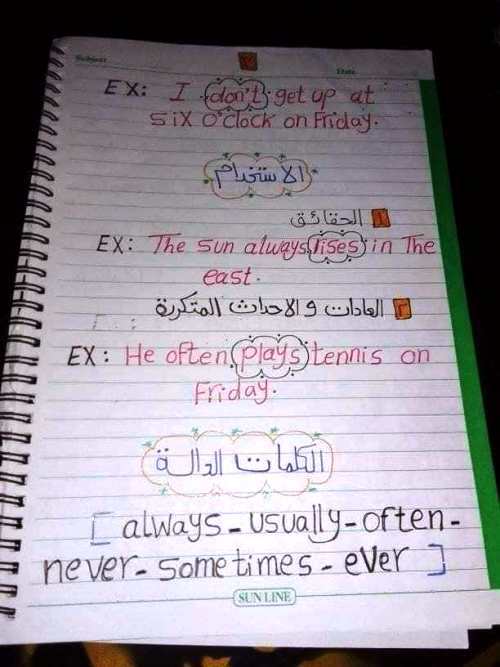 Subject
٢
Date
EX: I don't get up at
six o'clock on Friday.
الاستخدام
١ الحقائق
EX: The sun always rises in The
east.
٢ العادات و الاحداث المتكررة
EX: He often plays tennis on
Friday.
الكلمات الدالة
[always - usually - often -
never - sometimes - ever]
SUN LINE